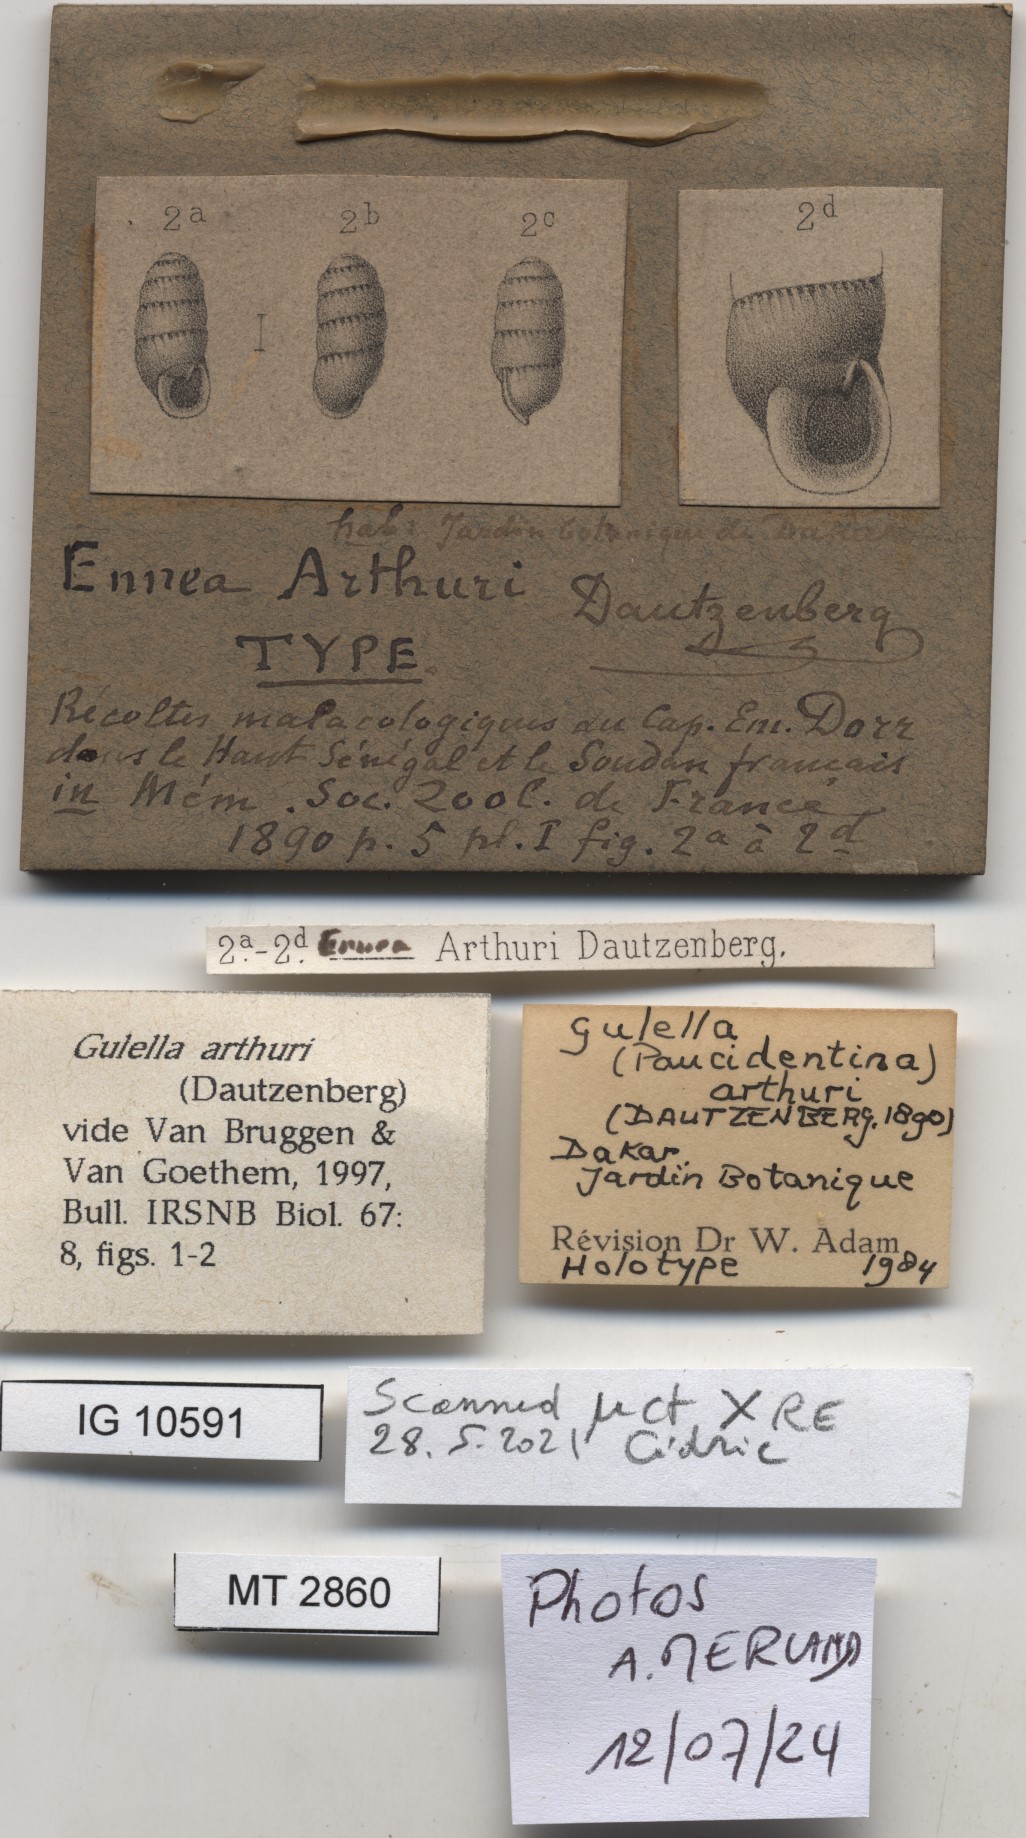 2a
2b
2c
2d
hab: Jardin botanique de Dakar
Ennea Arthuri Dautzenberg
TYPE
Récoltes malacologiques du Cap. Em. Dorr
dans le Haut Sénégal et le Soudan français
in Mém. Soc. Zool. de France
1890 p. 5 pl. I fig. 2a à 2d
2a.-2d. Ennea Arthuri Dautzenberg.
Gulella arthuri
(Dautzenberg)
vide Van Bruggen &
Van Goethem, 1997,
Bull. IRSNB Biol. 67:
8, figs. 1-2
Gulella
(Paucidentina)
arthuri
(DAUTZENBERG. 1890)
Dakar.
Jardin Botanique
Révision Dr W. Adam
Holotype 1984
IG 10591
Scanned µct XRE
28. 5. 2021 Cédric
MT 2860
Photos
A.
12/07/24